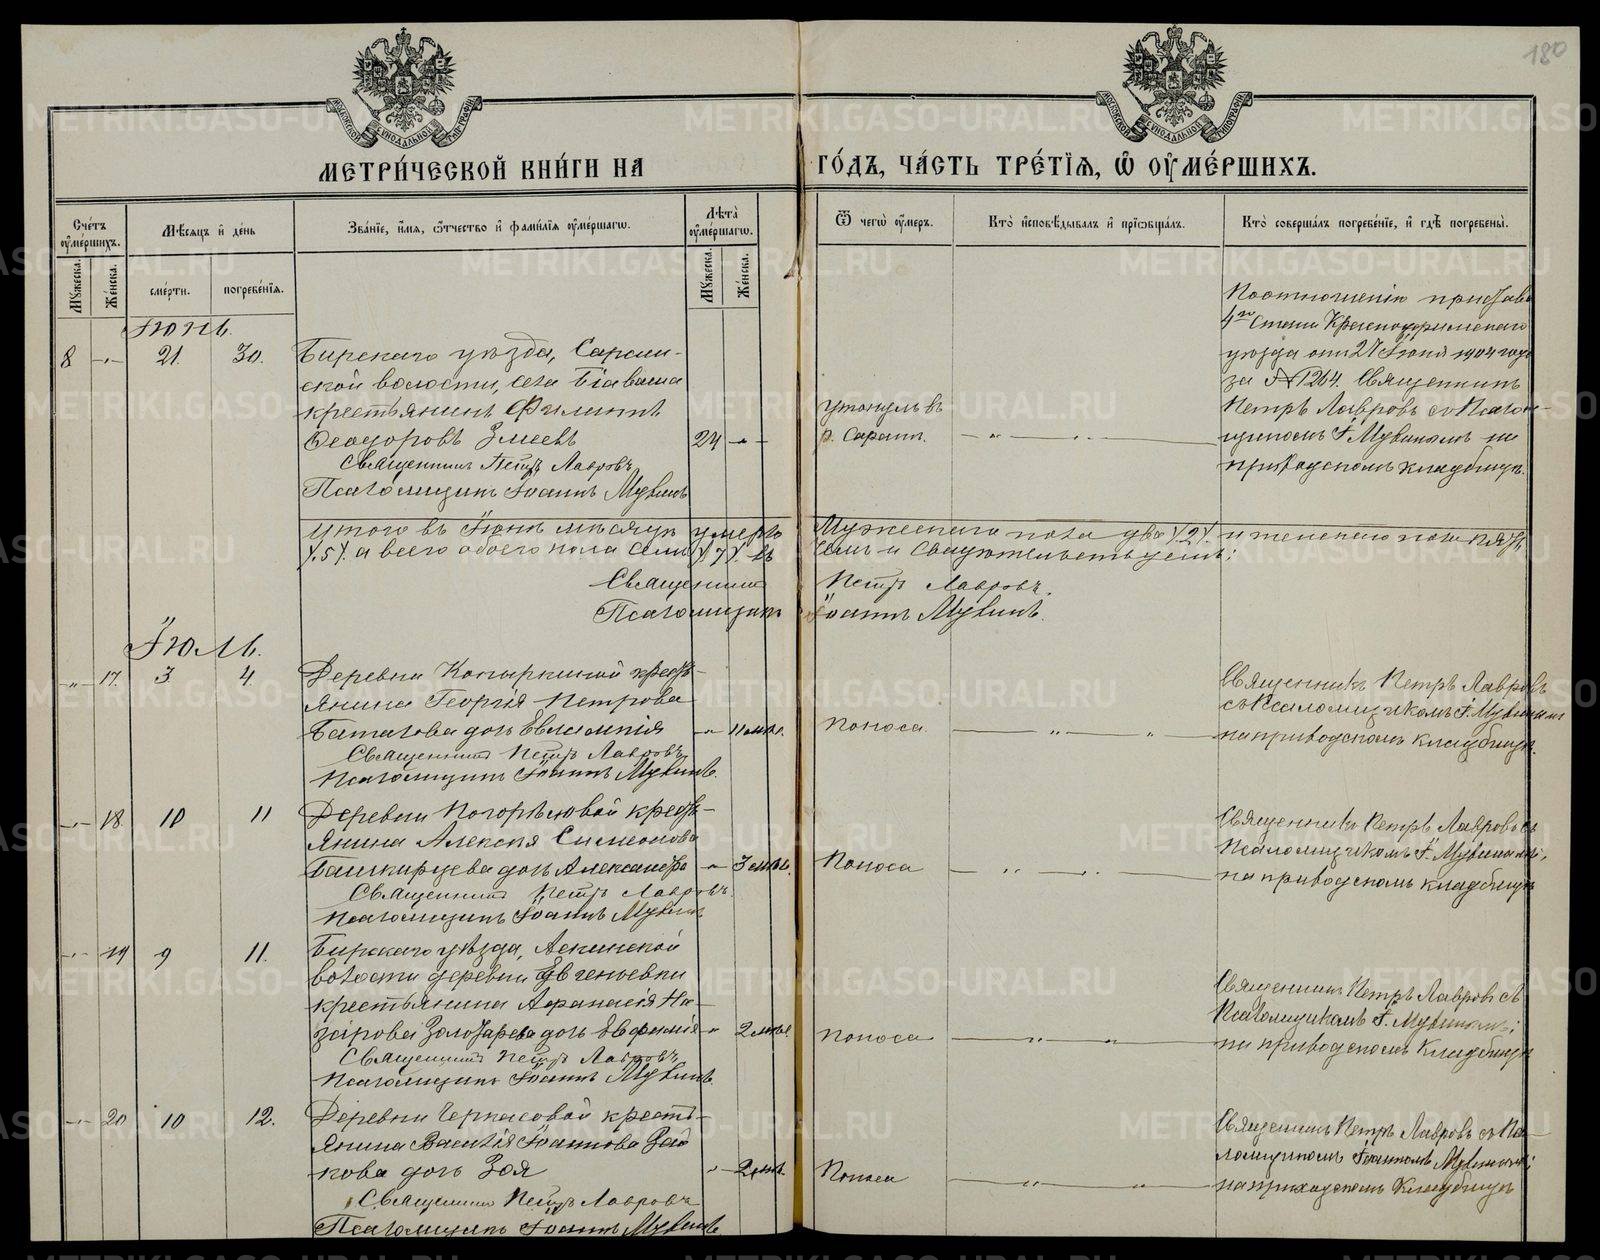 180
МОСКОВСКОЙ СѶНОДАЛЬНОЙ ТИПОГРАФІИ
МОСКОВСКОЙ СѶНОДАЛЬНОЙ ТИПОГРАФІИ
МЕТРИ́ЧЕСКОЙ КНИ́ГИ НА
ГО́ДЪ, ЧА́СТЬ ТРЕ́ТЇѦ, Ѽ ОУМЕ́РШИХЪ.
Сче́тъ оуме́ршихъ.
Мꙋжеска.
Же́нска.
Мѣ́сѧцъ и де́нь
сме́рти.
погребе́нїѧ.
Зва́нїе, и́мѧ, ѻ́тчество и фами́лїѧ оуме́ршагѡ.
Лѣта̀ оуме́ршагѡ.
Мꙋжеска.
Же́нска.
Ѿ чегѡ̀ оу́меръ.
Кто̀ исповѣ́дывалъ и прїѡбща́лъ.
Кто̀ соверша́лъ погребе́нїе, и гдѣ̀ погребены̀.
Іюнь.
8 -"- 21. 30.
Бирскаго уѣзда, Сарсин-
ской волости, села Біаваша
крестьянинъ Филиппъ
Ѳеодоровъ Змеевъ 24 -"-
Священникъ Петръ Лавровъ
Псаломщикъ Іоаннъ Мувинъ
утонулъ въ
р. Сарсъ.
По отношенію пристава
4го Стана Красноуфимскаго
уѣзда отъ 27 Іюня 1904 года
за № 1264. Священникъ
Петръ Лавровъ съ Псалом-
щикомъ І. Мувинымъ на
приходскомъ кладбищѣ.
Итого въ Іюнѣ мѣсяцѣ умерло Мужескаго пола два /.2./. и женскаго пола пять
/.5./. а всего обоего пола семь /.7./. въ семъ и свидѣтельствуемъ:
Священникъ Петръ Лавровъ.
Псаломщикъ Іоаннъ Мувинъ.
Іюль.
-"- 17. 3 4.
Деревни Копыркиной крестъ-
янина Георгія Петрова
дочь Евлампія -"- 11 мѣс.
Священникъ Петръ Лавровъ
Псаломщикъ Іоаннъ Мувинъ.
Поноса.
Священникъ Петръ Лавровъ
съ Псаломщикомъ І. Мувинымъ
на приходскомъ кладбищѣ.
-"- 18. 10 11
Деревни Погорѣловой кресть-
янина Алексѣя Симеонова
Башкирцева дочь Александра -"- 3 мѣс.
Священникъ Петръ Лавровъ.
Псаломщикъ Іоаннъ Мувинъ
Поноса
Священникъ Петръ Лавровъ съ
Псаломщикомъ І. Мувинымъ;
на приходскомъ кладбищѣ
-"- 19 9 11.
Бирскаго уѣзда, Аскинской
волости деревни Евгеньевки
крестьянина Аѳанасія На-
зарова Золотарева дочь Евфимія " 2 мѣс.
Священникъ Петръ Лавровъ
Псаломщикъ Іоаннъ Мувинъ.
Поноса
Священникъ Петръ Лавровъ съ
Псаломщикомъ І. Мувинымъ;
на приходскомъ кладбищѣ
-"- 20 10 12.
Деревни Черкасовой кресть-
янина Василія Іоаннова Зай
кова дочь Зоя " 2 мѣс.
Священникъ Петръ Лавровъ
Псаломщикъ Іоаннъ Мувинъ.
Поноса
Священникъ Петръ Лавровъ съ Пса-
ломщикомъ Іоанномъ Мувинымъ;
на приходскомъ кладбищѣ
METRIKI.GASO-URAL.RU